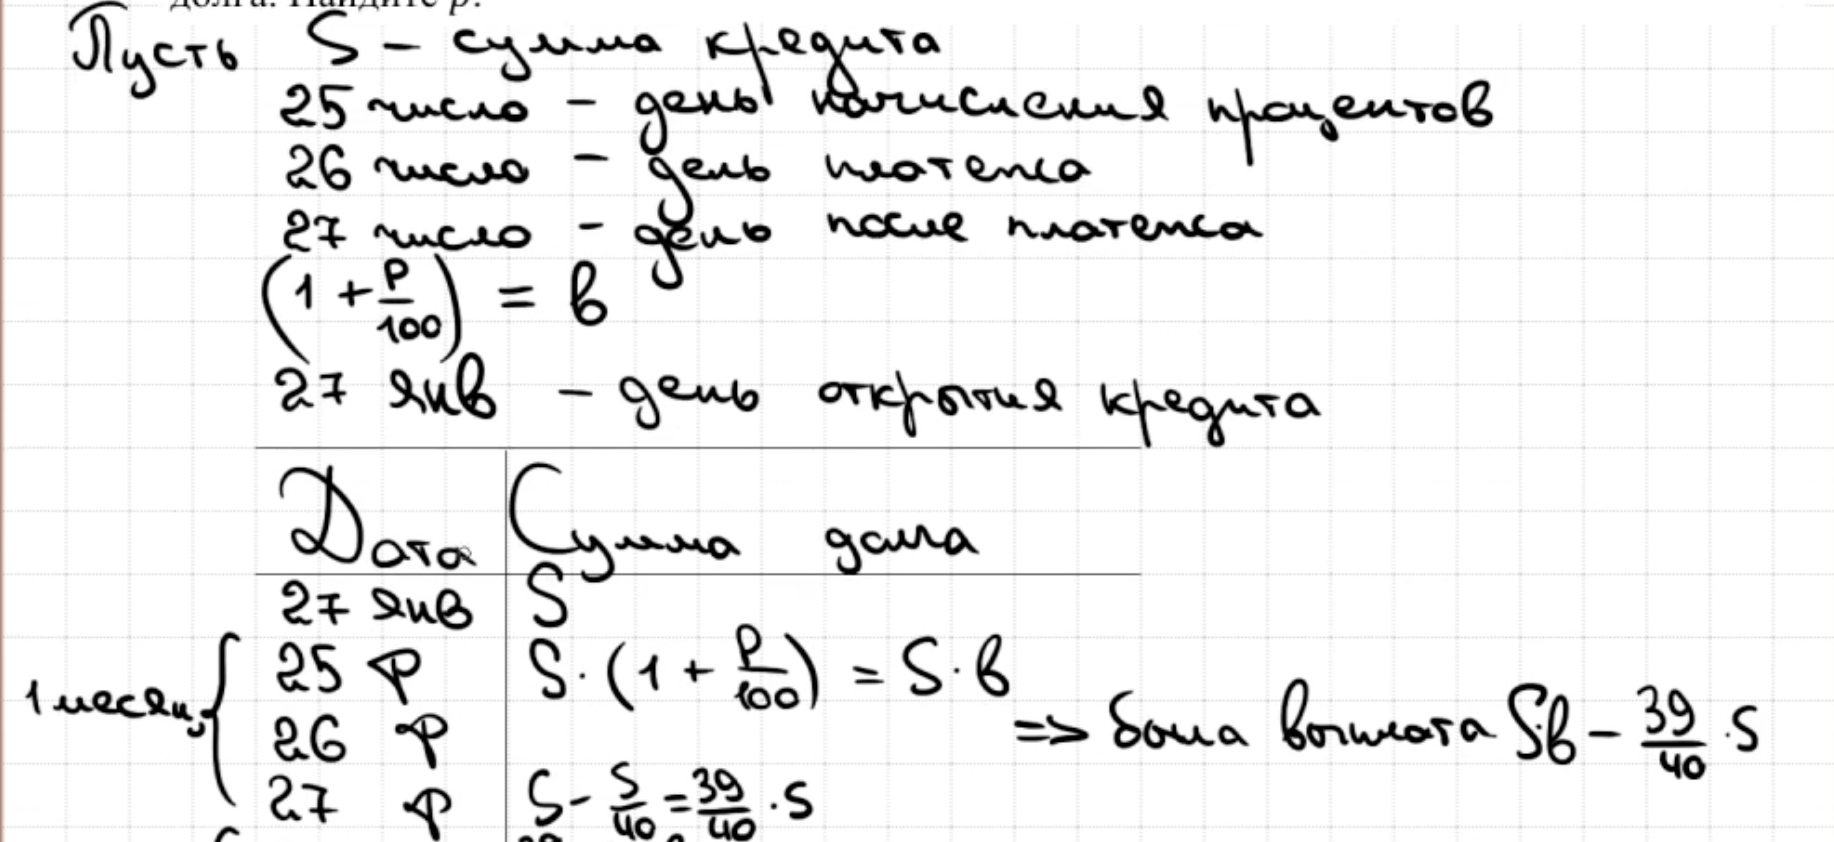 долга. Найдите p.
Пусть S – сумма кредита
25 число – день начисления процентов
26 число – день платежа
27 число – день после платежа
(1 + P/100) = b
27 янв – день открытия кредита
Дата Сумма долга
27 янв S
1 месяц
25 ф S · (1 + P/100) = S · b
26 ф => была выплата S·b – 39/40 · S
27 ф S – S/40 = 39/40 · S